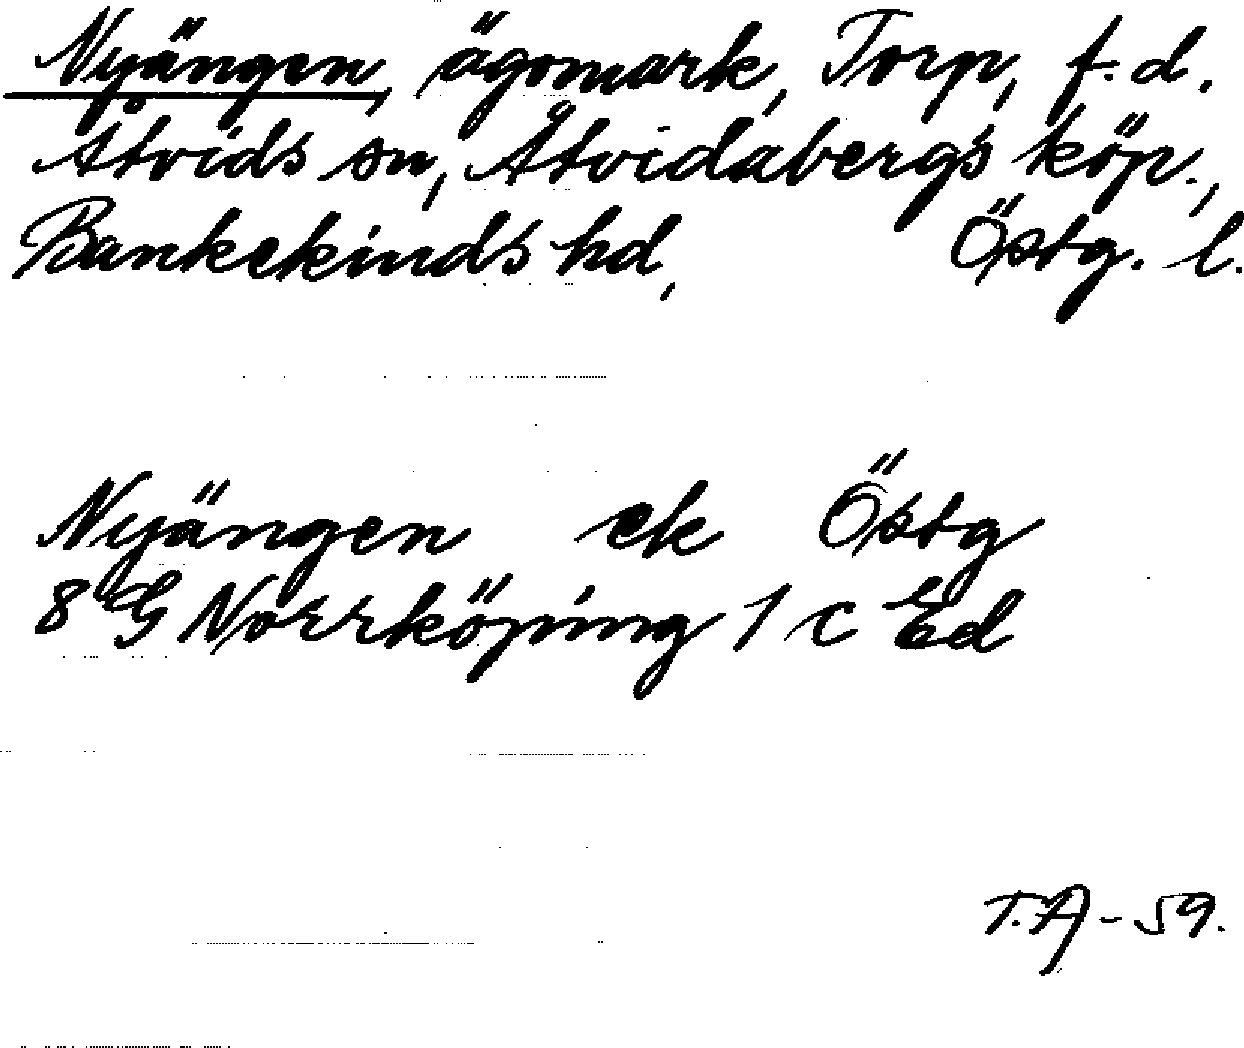 Nyängen, ägomark, Torp, f.d.
Åtvids sn, Åtvidabergs köp.,
Bankekinds hd, Östg. l.
Nyängen ek Östg
8 G Norrköping 1 c Ed
T.A-59.